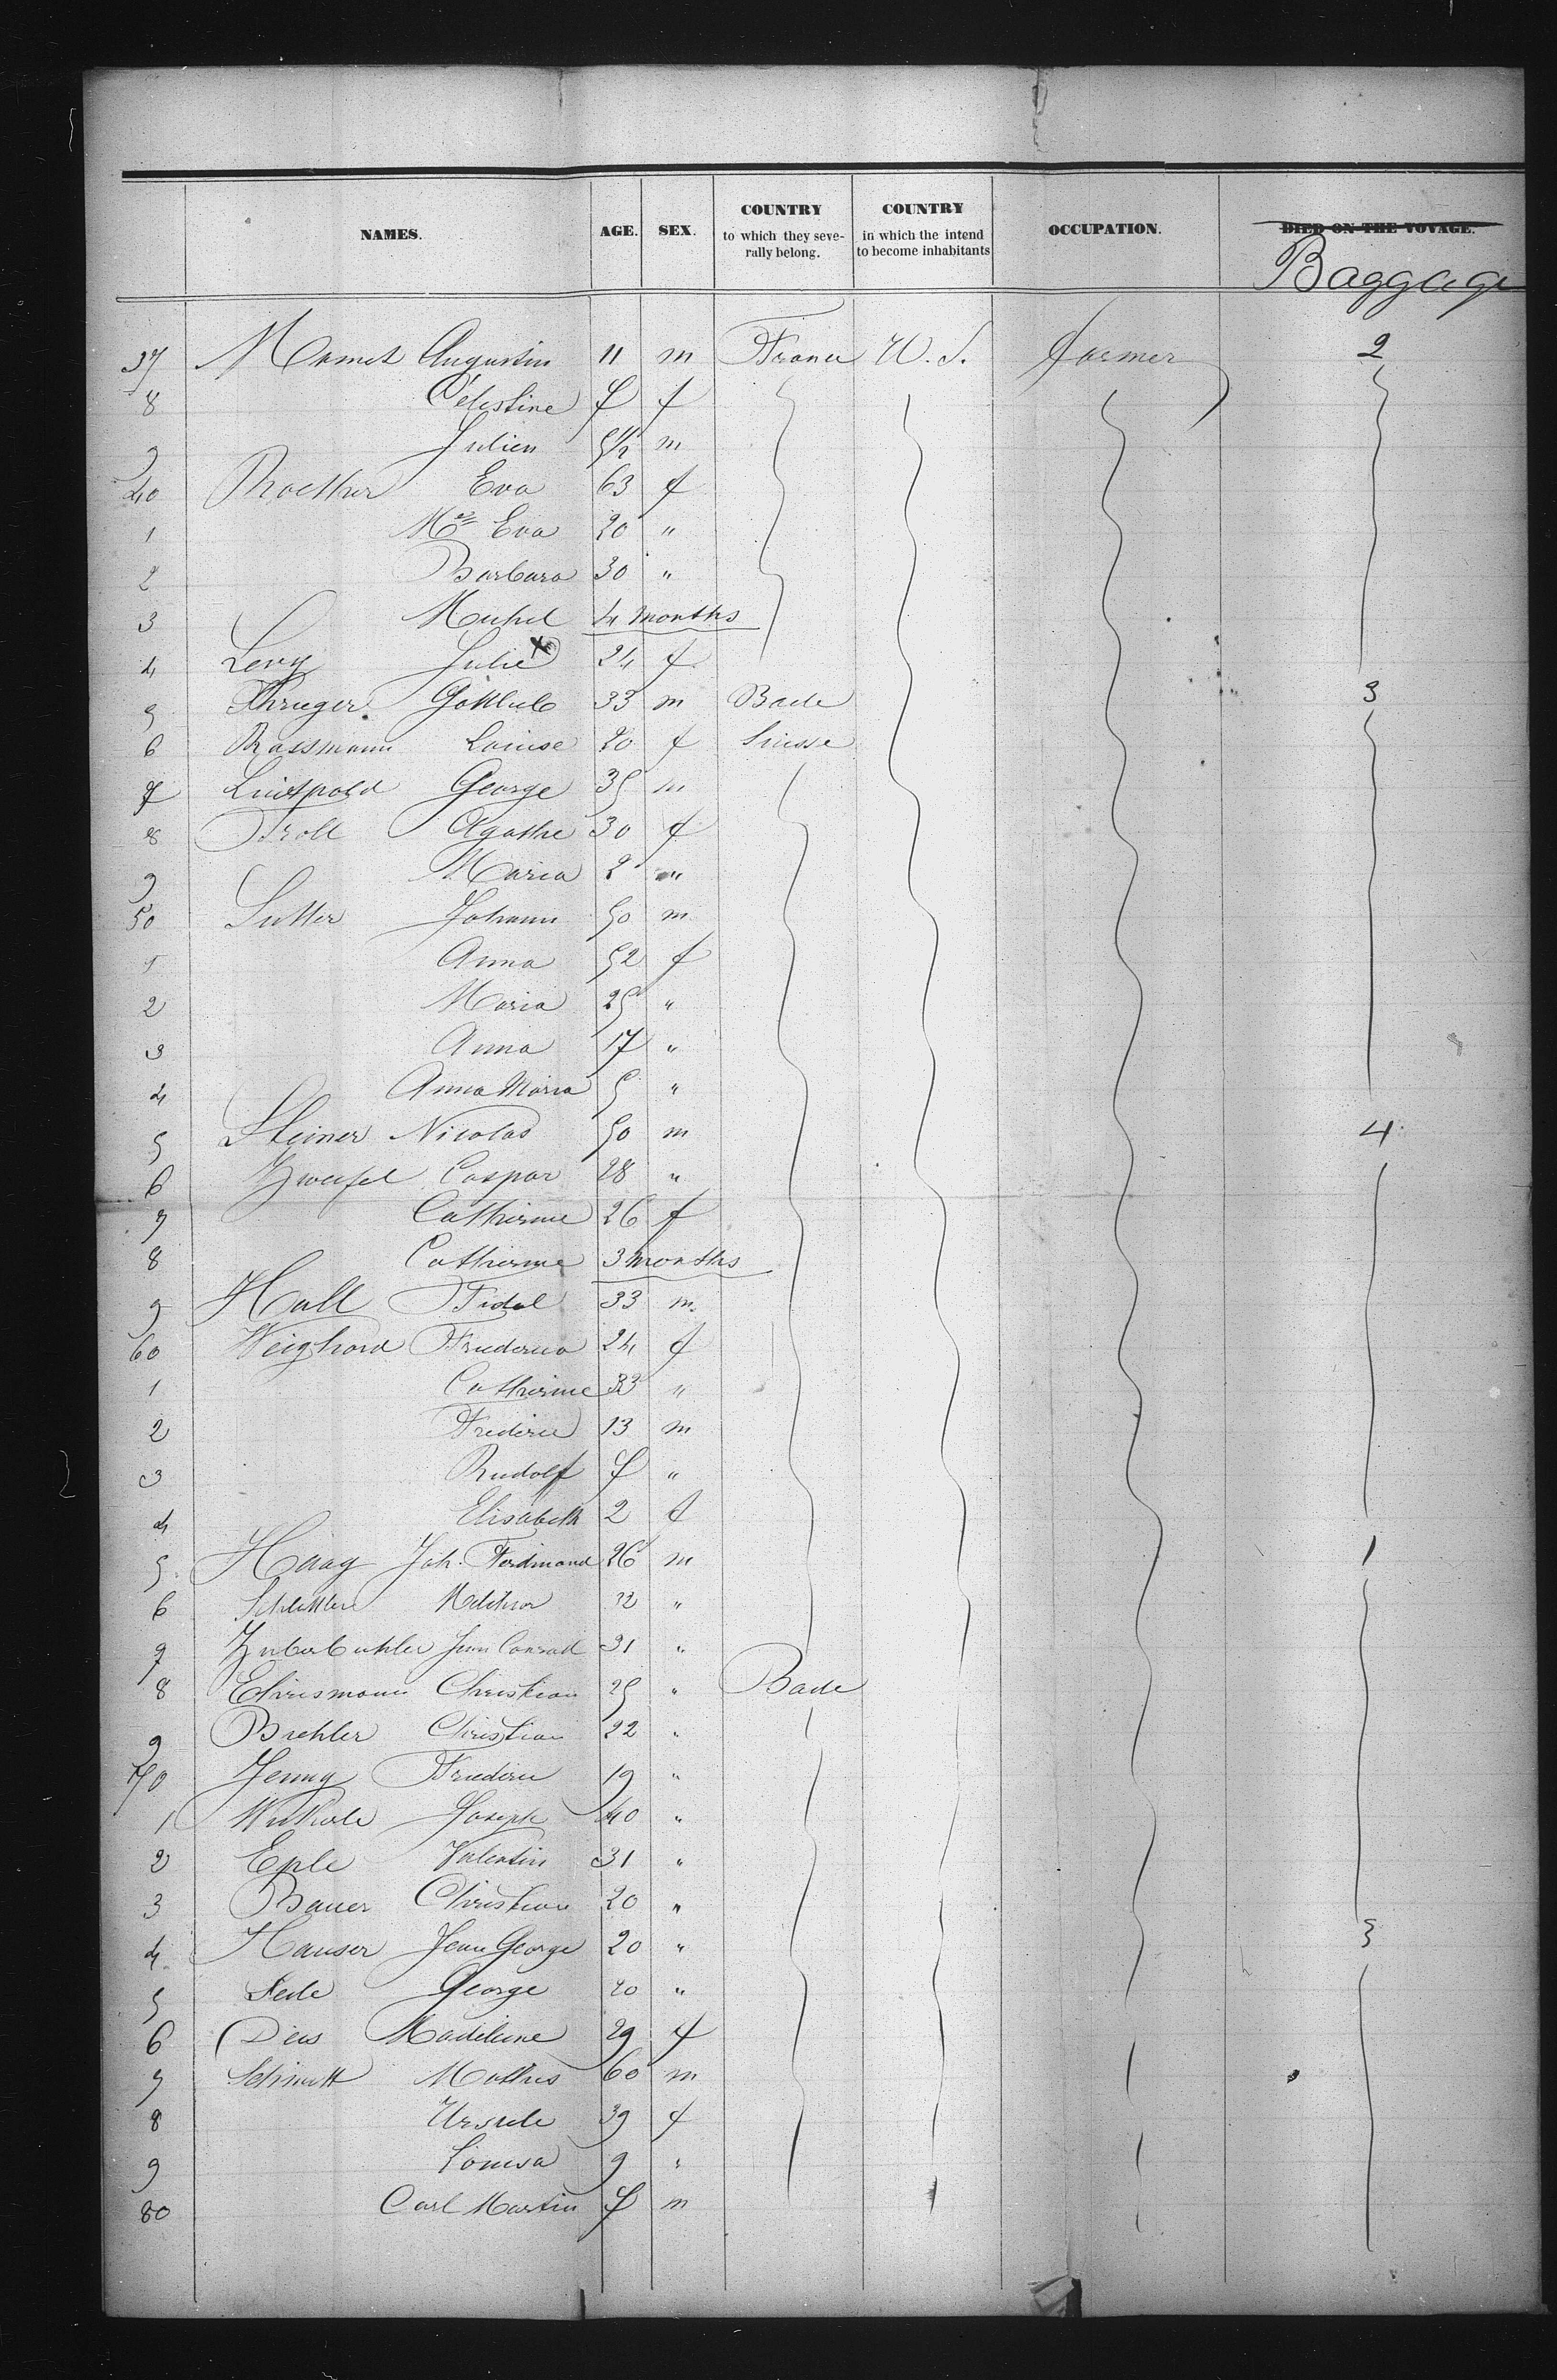 NAMES. AGE. SEX. COUNTRY to which they seve-rally belong. COUNTRY in which the intend to become inhabitants OCCUPATION. DIED ON THE VOYAGE.
Baggage
37 Augustin 11 m France U. S. farmer 2
8 Célestine 7 f
9 Julien 5½ m
40 Eva 63 f
1 Eva 20 "
2 Barbara 30 "
3 Michel 4 months
4 Levy Julie 24 f
5 Krieger Gottlieb 33 m Bade 3
6 Rossmann Louise 20 f Suisse
7 Luitpold George 35 m
8 Troll Agathe 30 f
9 Maria 2 "
50 Sutter Johann 50 m
1 Anna 52 f
2 Maria 25 "
3 Anna 17 "
4 Anna Maria 5 "
5 Steiner Nicolas 50 m 4
6 Zweifel Caspar 28 "
7 Catherine 26 f
8 Catherine 3 months
9 Hall Fidel 33 m.
60 Weighard 24 f
1 Catherine 33 "
2 Frederic 13 m
3 Rudolf 7 "
4 Elisabeth 2 f
5 Haag Joh. Ferdinand 26 m 1
6 Melchior 32 "
7 Zuberbuhler Jean Conrad 31 "
8 Ehrismann Christian 25 " Bade
9 Buehler Christian 22 "
70 Jenny Friederic 19 "
1 Joseph 40 "
2 Eple Valentin 31 "
3 Bauer Christian 20 "
4 Hauser Jean George 20 " 3
5 George 20 "
6 Madeleine 29 f
7 Schmitt Mathis 60 m
8 Ursule 39 f
9 Louisa 9 "
80 Carl Martin 7 m